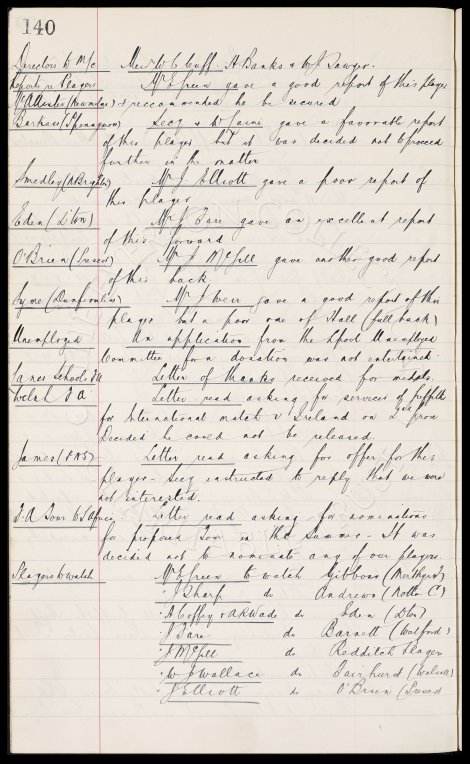 140
Directors to M/c Messrs W. C. Cuff. H. Banks & W. J. Sawyer.
Reports re Players Mr E Green gave a good report of this player
McAllister (Newmilns) & recommended he be secured
Secy & W Caine gave a favorable report
of this player but it was decided not to proceed
further in the matter
Smedley (N Brighton) Mr J. Elliott gave a poor report of
this player
Eden (D'ton) Mr J Tare gave an excellent report
of this forward
O'Brien (Swansea) Mr J McGill gave another good report
of this back
Syme (Dunfermline) Mr J Weir gave a good report of this
player but a poor one of Hall (full back)
Unemployed An application from the Lpool Unemployed
Committee for a donation was not entertained.
Lancs Schools FA Letter of thanks received for medals.
Welsh F A Letter read asking for services of
for International match v Ireland on
Decided he could not be released.
James (PNE) Letter read asking for offer for this
player - Secy instructed to reply that we were
not interested.
F-A Tour to S Africa Letter read asking for nominations
for proposed Tour in the Summer - It was
decided not to nominate any of our players.
Players to watch Mr E Green to watch Gibbons (Merthyr T)
" J Sharp do Andrews (Notts C)
" A Coffey & A R Wade do Eden (Dton)
" J Tare do Barnett (Watford)
" J McGill do Redditch Player
" W J Wallace do Fairhurst (Walsall)
" J Elliott do O'Brien (Swansea